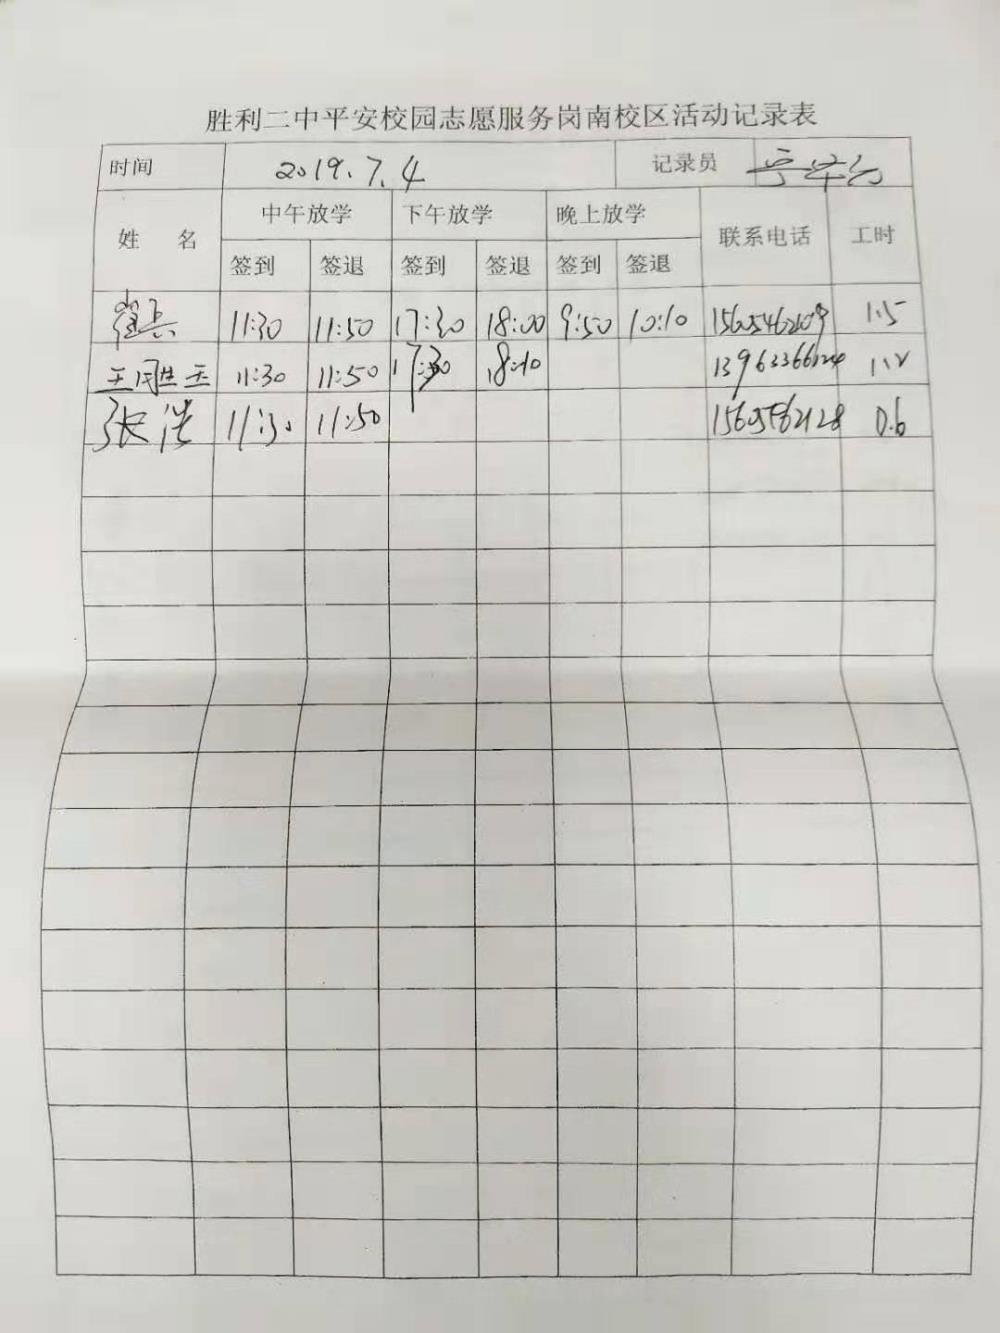 胜利二中平安校园志愿服务岗南校区活动记录表
时间 2019.7.4 记录员
姓 名 中午放学 下午放学 晚上放学 联系电话 工时
签到 签退 签到 签退 签到 签退
11:30 11:50 17:30 18:00 9:50 10:10 1.5
王 11:30 11:50 17:30 18:10 1.2
张浩 11:30 11:50 0.6